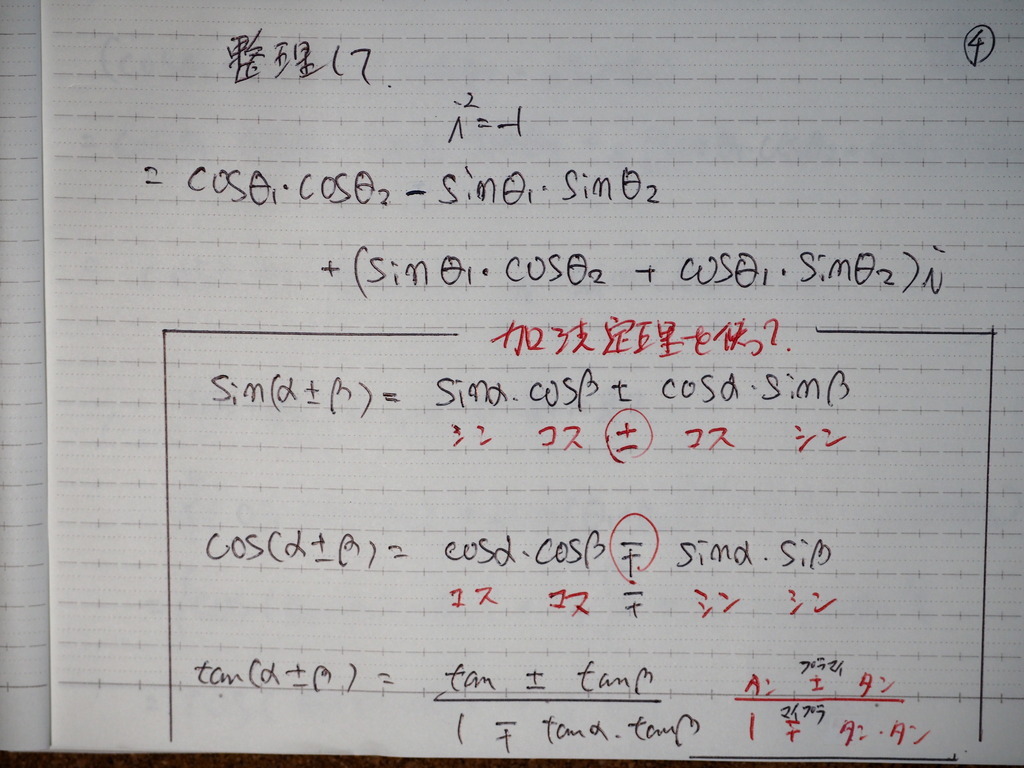 ④
整理して
i²=-1
= cosθ₁・cosθ₂ - sinθ₁・sinθ₂
+(sinθ₁・cosθ₂ + cosθ₁・sinθ₂)i
加法定理を使って.
sin(α±β)= sinα・cosβ ± cosα・sinβ
シン コス ± コス シン
cos(α±β)= cosα・cosβ ∓ sinα・siβ
コス コス ∓ シン シン
プラマイ
tan(α±β)= tan ± tanβ タン ± タン
マイプラ
1 ∓ tanα・tanβ 1 ∓ タン・タン